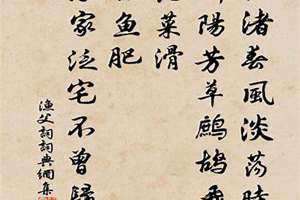 渚春風淡蕩時
陽芳草鷓鴣
菜滑
魚肥
家泛宅不曾歸
漁父詞詞典網集